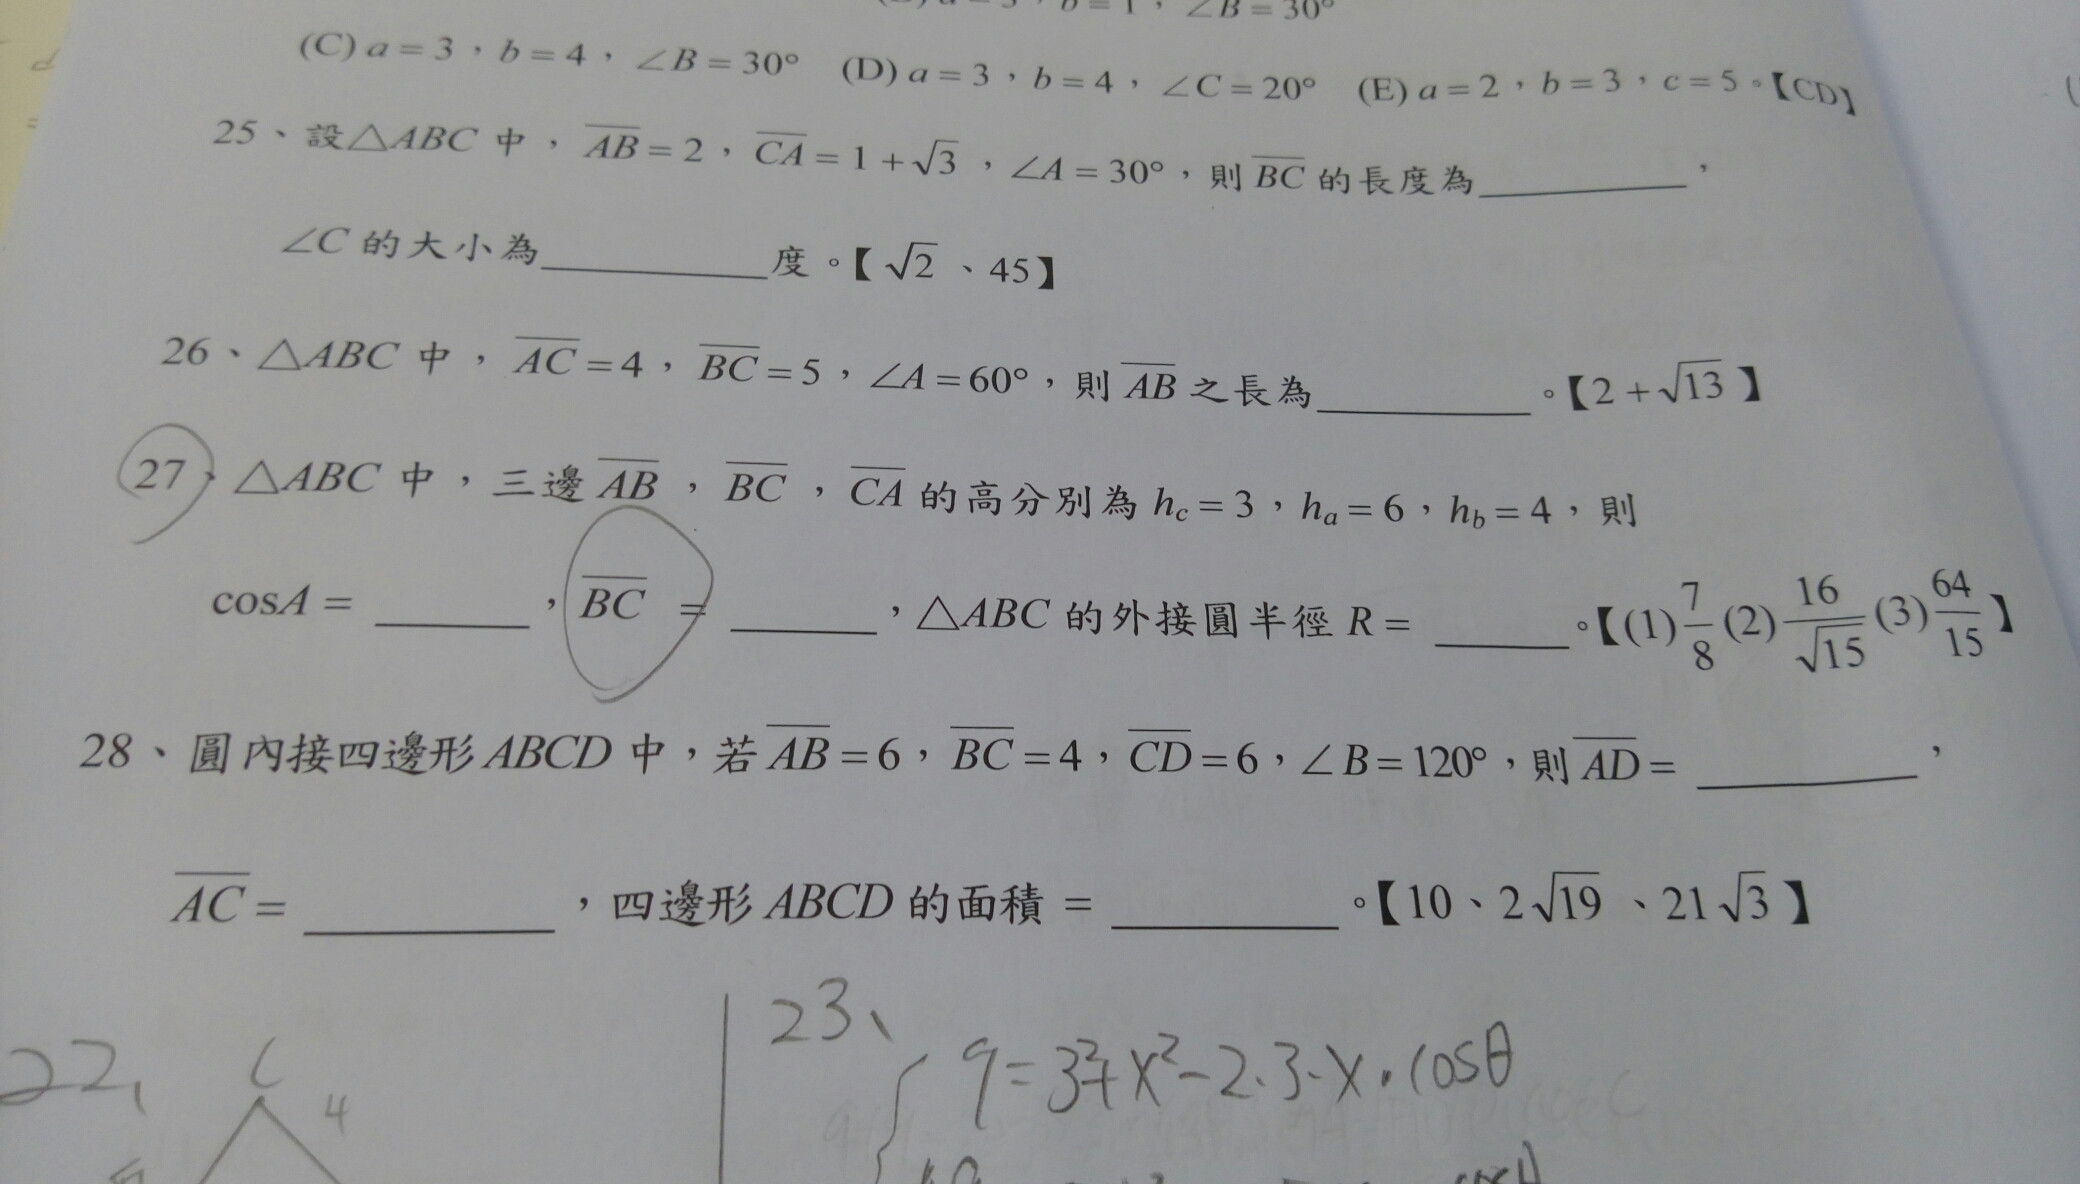 b = 1, ∠B = 30°
(C) a = 3，b = 4，∠B = 30° (D) a = 3，b = 4，∠C = 20° (E) a = 2，b = 3，c = 5。【CD】
25、設△ABC 中，AB = 2，CA = 1 + √3，∠A = 30°，則 BC 的長度為________，
∠C 的大小為________度。【√2、45】
26、△ABC 中，AC = 4，BC = 5，∠A = 60°，則 AB 之長為________。【2 + √13】
27、△ABC 中，三邊 AB，BC，CA 的高分別為 h_c = 3，h_a = 6，h_b = 4，則
cosA = ______，BC = ______，△ABC 的外接圓半徑 R = ______。【(1) 7/8 (2) 16/√15 (3) 64/15】
28、圓內接四邊形 ABCD 中，若 AB = 6，BC = 4，CD = 6，∠B = 120°，則 AD = ________，
AC = ________，四邊形 ABCD 的面積 = ________。【10、2√19、21√3】
22、 C 4
23、
9 = 3² + x² - 2·3·x·cosθ